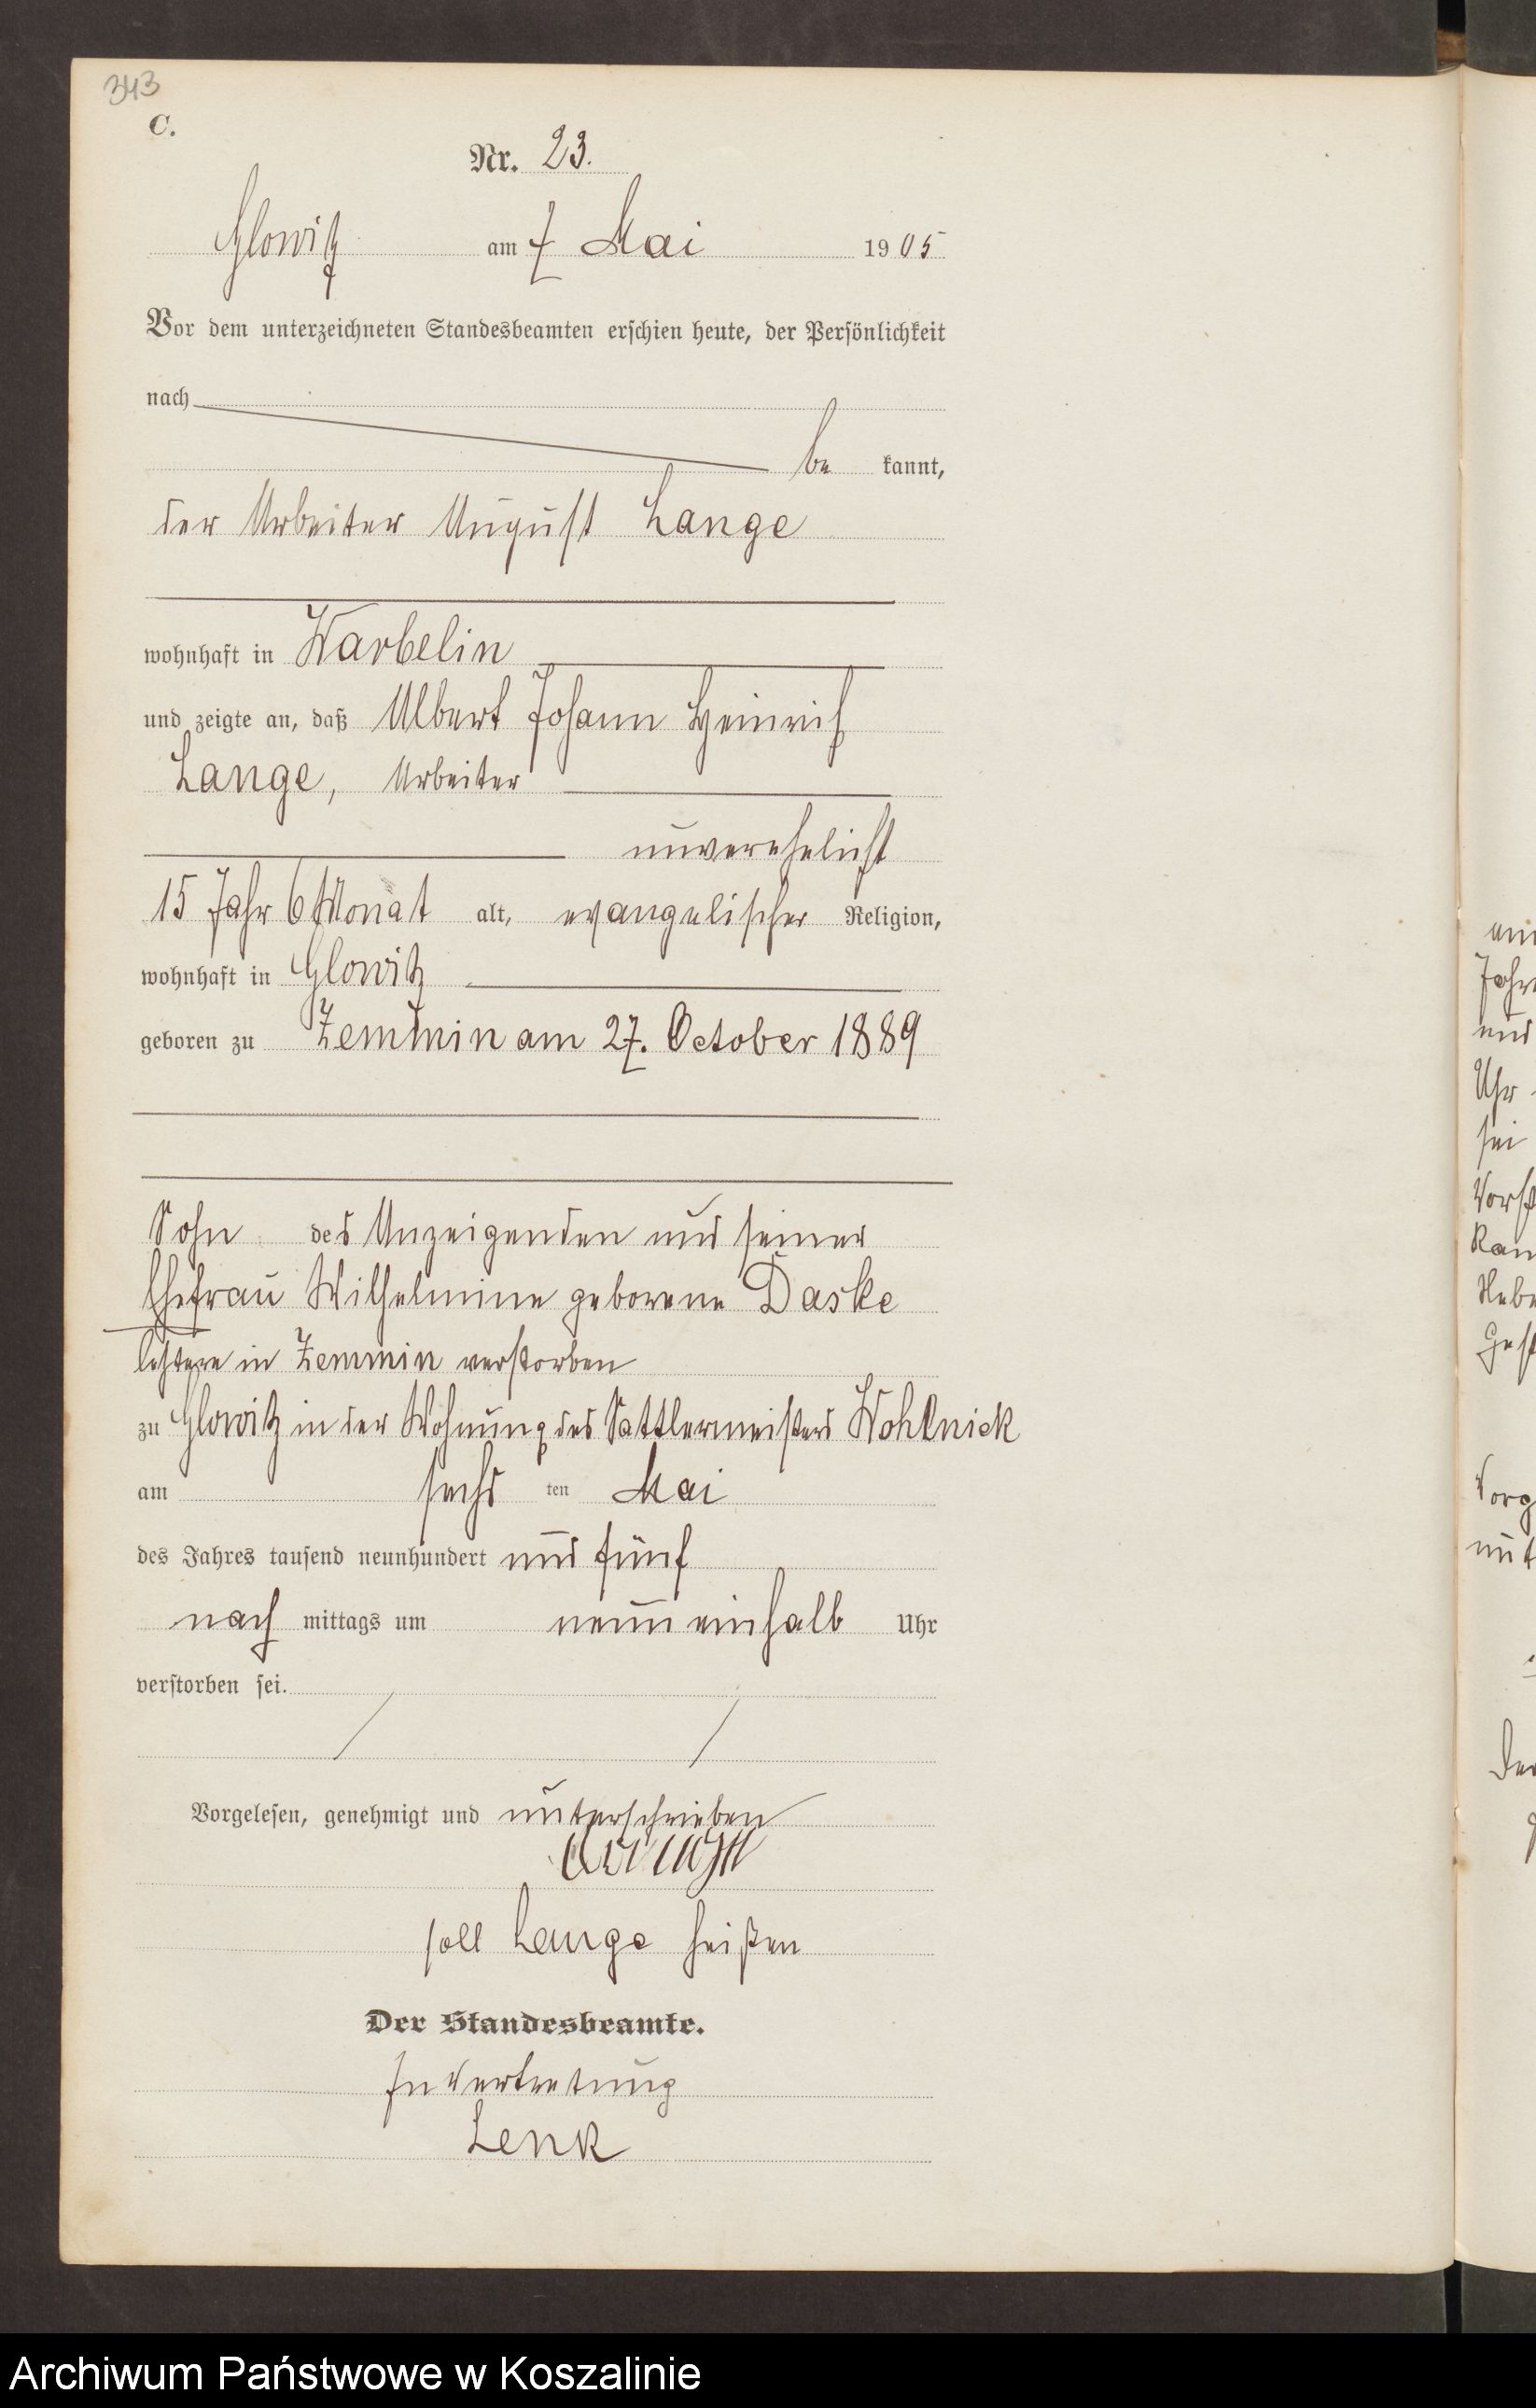 343
C.
Nr. 23.
Glowitz am 7 Mai 1905
Vor dem unterzeichneten Standesbeamten erschien heute, der Persönlichkeit
nach
be kannt,
der Arbeiter August Lange
wohnhaft in Warbelin
und zeigte an, daß Albert Johann Heinrich
Lange, Arbeiter
unverehelicht
15 Jahr 6 Monat alt, evangelischer Religion,
wohnhaft in Glowitz
geboren zu Zemmin am 27. October 1889
Sohn des Anzeigenden und seiner
Ehefrau Wilhelmine geborene Daske
letztere in Zemmin verstorben
zu Glowitz in der Wohnung des Sattlermeisters
am sechs ten Mai
des Jahres tausend neunhundert und fünf
nach mittags um neun einhalb Uhr
verstorben sei.
Vorgelesen, genehmigt und unterschrieben
soll Lange heißen
Der Standesbeamte.
In Vertretung
Lenk
ein
Jahre
und
Uhr
sei
Vorg
Der
Archiwum Państwowe w Koszalinie